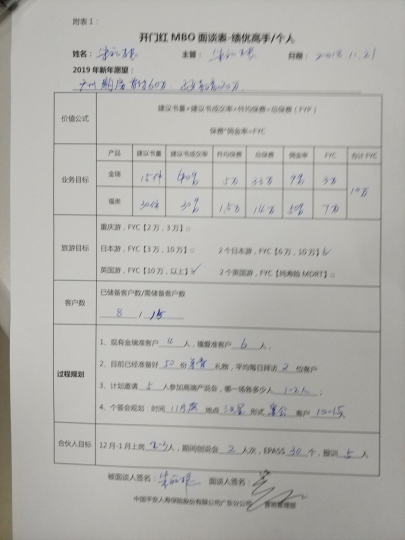 附表1：
开门红 MBO 面谈表-绩优高手/个人
姓名： 主管： 日期： 2018.11.21
2019 年新年愿望：
价值公式
建议书量×建议书成交率×件均保费=总保费（FYP）
保费*佣金率=FYC
业务目标
产品 建议书量 建议书成交率 件均保费 总保费 佣金率 FYC 合计 FYC
金瑞 15件 40% 5万 33万 9% 3万 10万
福类 30件 30% 1.5万 14万 50% 7万
旅游目标
重庆游，FYC【2万，3万】□
日本游，FYC【3万，10万】□ 2个日本游，FYC【6万，10万】✓
英国游，FYC【10万，以上】✓ 2个英国游，FYC【钻寿险 MDRT】□
客户数
已储备客户数/需储备客户数
8 / 15
过程规划
1、现有金瑞准客户 4 人，福爱准客户 6 人，
2、目前已经准备好 50 份 礼物，平均每日拜访 2 位客户
3、计划邀请 5 人参加高端产说会，哪一场各多少人 1-2人；
4、个答会规划：时间 11月底 地点 形式 客户 10-15
合伙人目标
12月-1月上岗 2-3人，期间创说会 2 人次，EPASS 30 个，报训 5 人
被面谈人签名： 面谈人签名：
中国平安人寿保险股份有限公司广东分公司 营销管理部